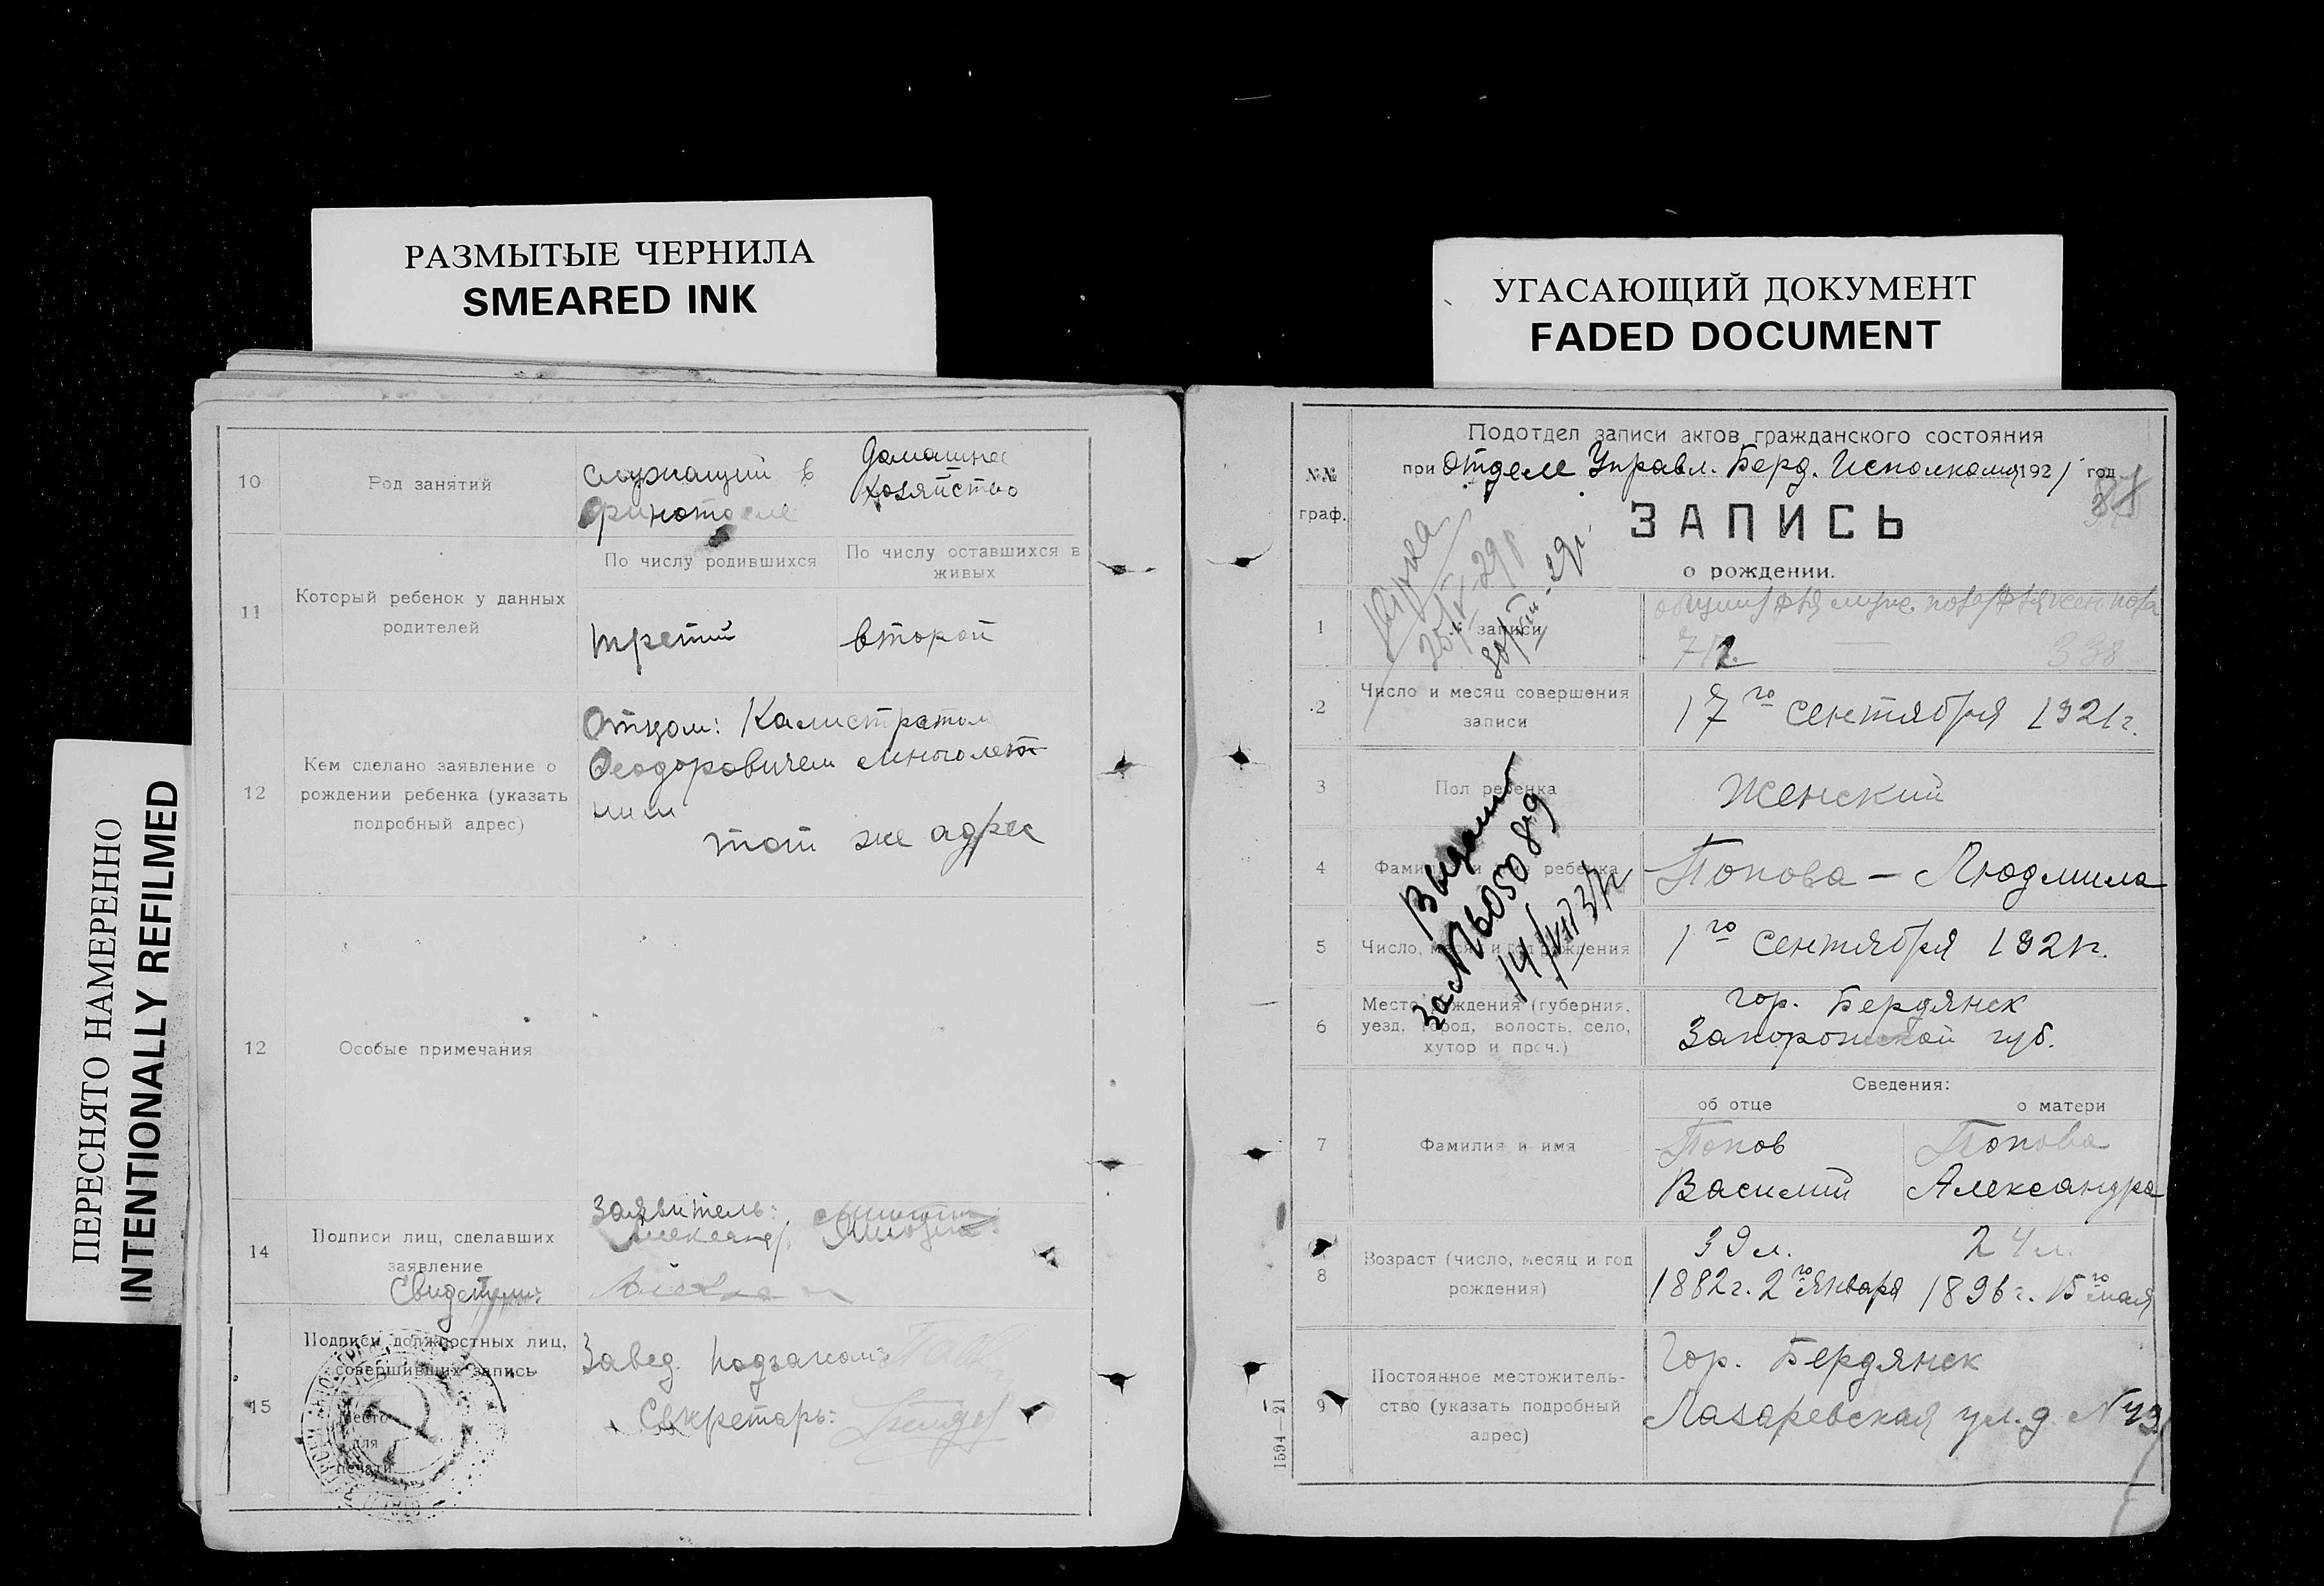 РАЗМЫТЫЕ ЧЕРНИЛА
SMEARED INK
УГАСАЮЩИЙ ДОКУМЕНТ
FADED DOCUMENT
ПЕРЕСНЯТО НАМЕРЕННО
INTENTIONALLY REFILMED
10
Род занятий
служащий в
финотделе
домашнее
хозяйство
11
Который ребенок у данных
родителей
По числу родившихся
По числу оставшихся в
живых
третий
второй
12
Кем сделано заявление о
рождении ребенка (указать
подробный адрес)
Отцом: Калистратом
Феодоровичем Многолет
ним
тот же адрес
12
Особые примечания
14
Подписи лиц, сделавших
заявление
Свидетели:
Заявитель:
15
Подписи должностных лиц,
совершивших запись
Место
для
печати
Завед. подзагсом:
Секретарь:
№№
граф.
Подотдел записи актов гражданского состояния
при Отделе Управл. Берд. Исполкома 1921 год
ЗАПИСЬ
о рождении.
1
№ записи
712.
338
2
Число и месяц совершения
записи
17го сентября 1921г.
3
Пол ребенка
Женский
4
Фамилия и имя ребенка
Попова - Людмила
5
Число, месяц и год рождения
1го сентября 1921г.
6
Место рождения (губерния,
уезд, город, волость, село,
хутор и проч.)
гор. Бердянск
Запорожской губ.
Сведения:
об отце
о матери
7
Фамилия и имя
Попов
Василий
Попова
Александра
8
Возраст (число, месяц и год
рождения)
39 л.
1882г. 2го января
24 л.
1896г. 15го мая
9
Постоянное местожитель-
ство (указать подробный
адрес)
Гор. Бердянск
Лазаревская ул. д. №43
1594—21